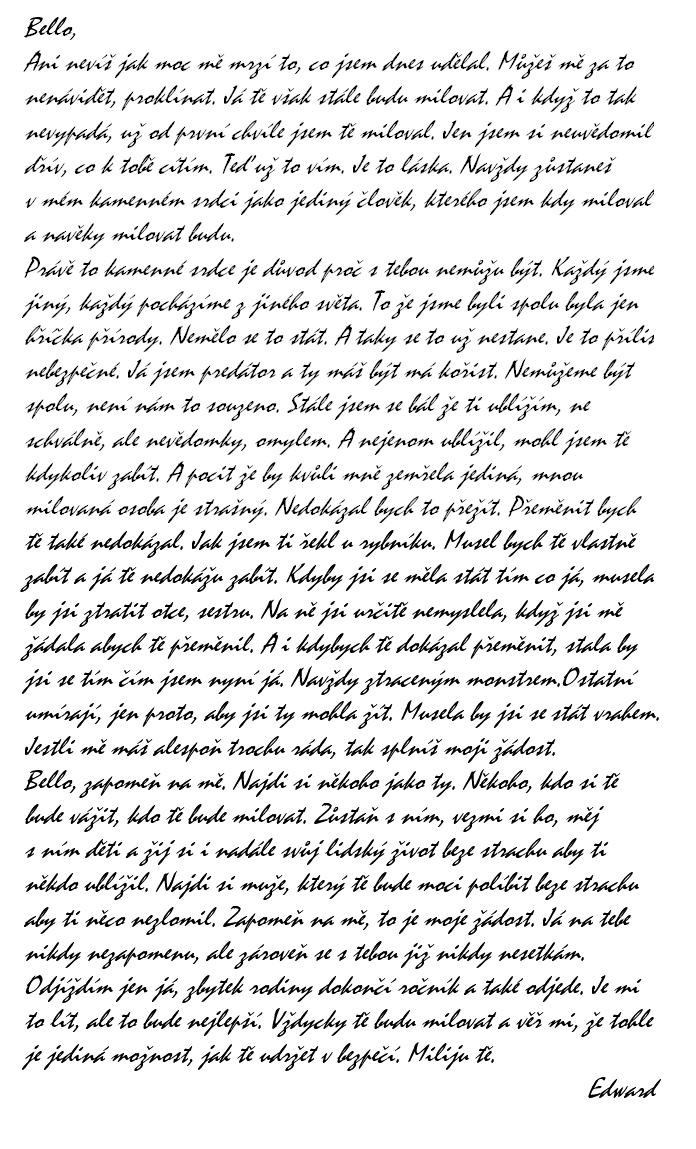 Bello,
Ani nevíš jak moc mě mrzí to, co jsem dnes udělal. Můžeš mě za to
nenávidět, proklínat. Já tě však stále budu milovat. A i když to tak
nevypadá, už od první chvíle jsem tě miloval. Jen jsem si neuvědomil
dřív, co k tobě cítím. Teď už to vím. Je to láska. Navždy zůstaneš
v mém kamenném srdci jako jediný člověk, kterého jsem kdy miloval
a navěky milovat budu.
Právě to kamenné srdce je důvod proč s tebou nemůžu být. Každý jsme
jiný, každý pocházíme z jiného světa. To že jsme byli spolu byla jen
hříčka přírody. Nemělo se to stát. A taky se to už nestane. Je to příliš
nebezpečné. Já jsem predátor a ty máš být má kořist. Nemůžeme být
spolu, není nám to souzeno. Stále jsem se bál že ti ublížím, ne
schválně, ale nevědomky, omylem. A nejenom ublížil, mohl jsem tě
kdykoliv zabít. A pocit že by kvůli mně zemřela jediná, mnou
milovaná osoba je strašný. Nedokázal bych to přežít. Přeměnit bych
tě také nedokázal. Jak jsem ti řekl u rybníku. Musel bych tě vlastně
zabít a já tě nedokážu zabít. Kdyby jsi se měla stát tím co já, musela
by jsi ztratit otce, sestru. Na ně jsi určitě nemyslela, když jsi mě
žádala abych tě přeměnil. A i kdybych tě dokázal přeměnit, stala by
jsi se tím čím jsem nyní já. Navždy ztraceným monstrem.Ostatní
umírají, jen proto, aby jsi ty mohla žít. Musela by jsi se stát vrahem.
Jestli mě máš alespoň trochu ráda, tak splníš moji žádost.
Bello, zapomeň na mě. Najdi si někoho jako ty. Někoho, kdo si tě
bude vážit, kdo tě bude milovat. Zůstaň s ním, vezmi si ho, měj
s ním děti a žij si i nadále svůj lidský život beze strachu aby ti
někdo ublížil. Najdi si muže, který tě bude moci políbit beze strachu
aby ti něco nezlomil. Zapomeň na mě, to je moje žádost. Já na tebe
nikdy nezapomenu, ale zároveň se s tebou již nikdy nesetkám.
Odjíždím jen já, zbytek rodiny dokončí ročník a také odjede. Je mi
to lít, ale to bude nejlepší. Vždycky tě budu milovat a věř mi, že tohle
je jediná možnost, jak tě udržet v bezpečí. Miliju tě.
Edward